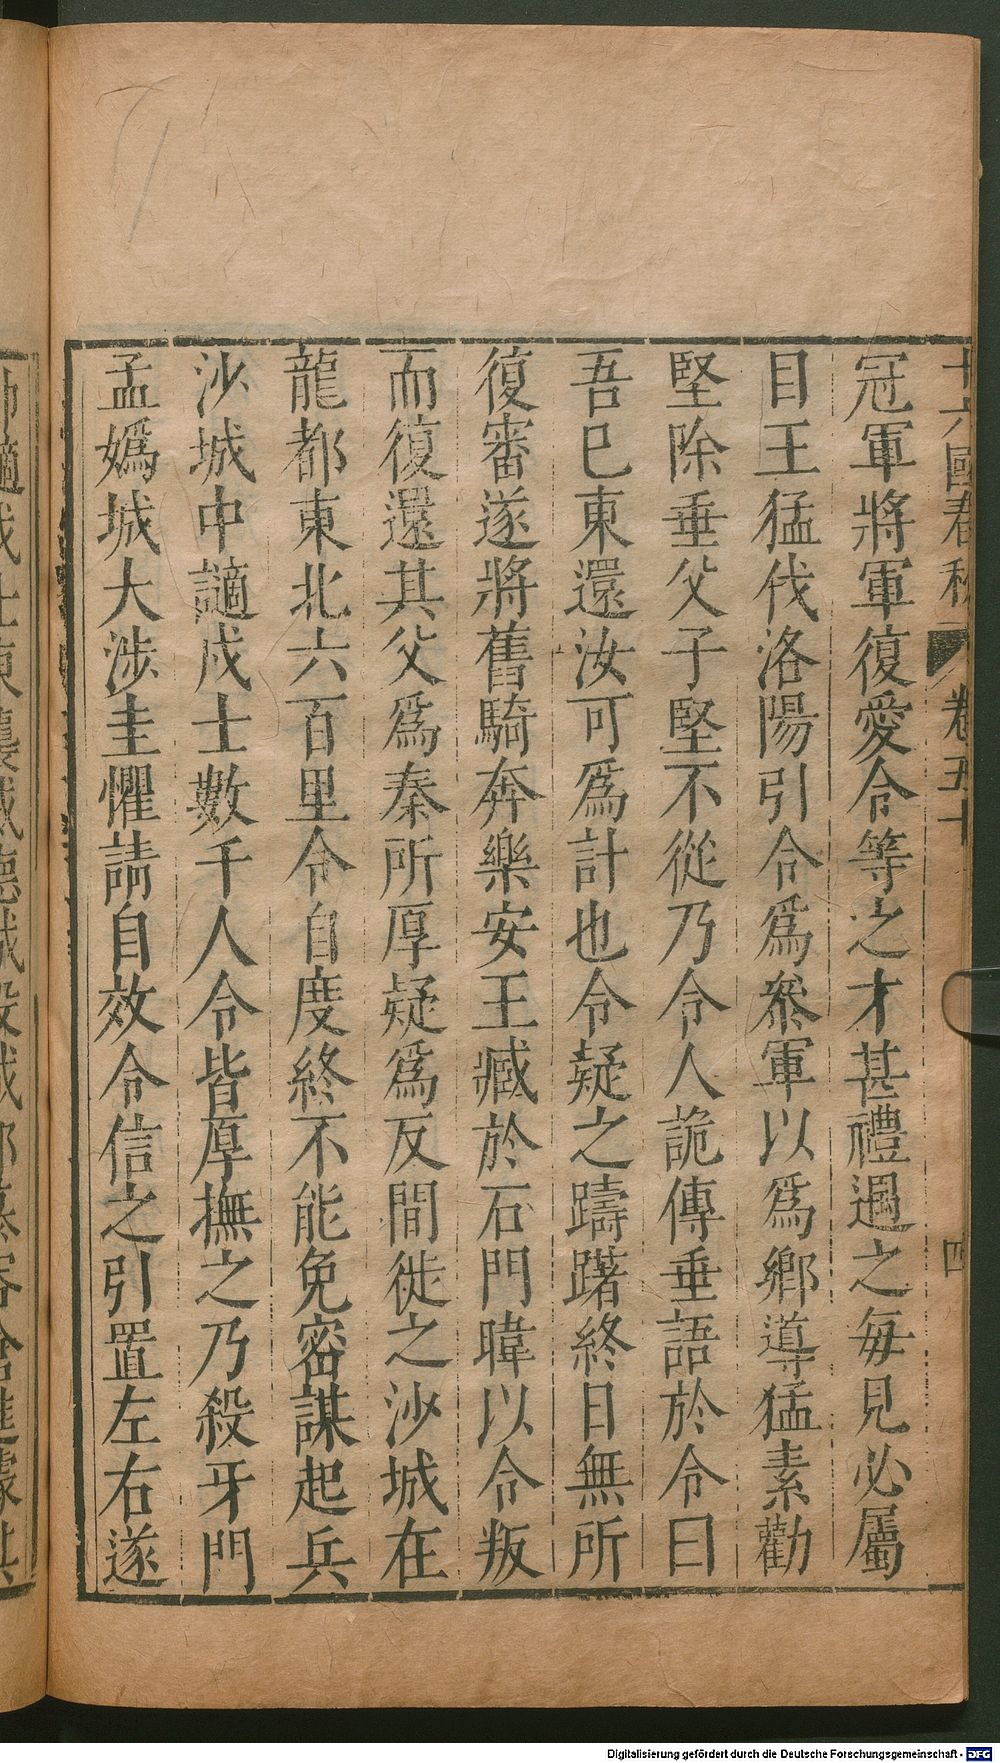 十六國春秋 卷五十 四
冠軍將軍復愛令等之才甚禮遇之每見必屬
目王猛伐洛陽引令爲叅軍以爲鄉導猛素勸
堅除垂父子堅不從乃令人詭傳垂語於令曰
吾已東還汝可爲計也令疑之躊躇終日無所
復審遂將舊騎奔樂安王臧於石門暐以令叛
而復還其父爲秦所厚疑爲反間徙之沙城在
龍都東北六百里令自度終不能免密謀起兵
沙城中謫戍士數千人令皆厚撫之乃殺牙門
孟嬀城大涉圭懼請自效令信之引置左右遂
Digitalisierung gefördert durch die Deutsche Forschungsgemeinschaft - DFG